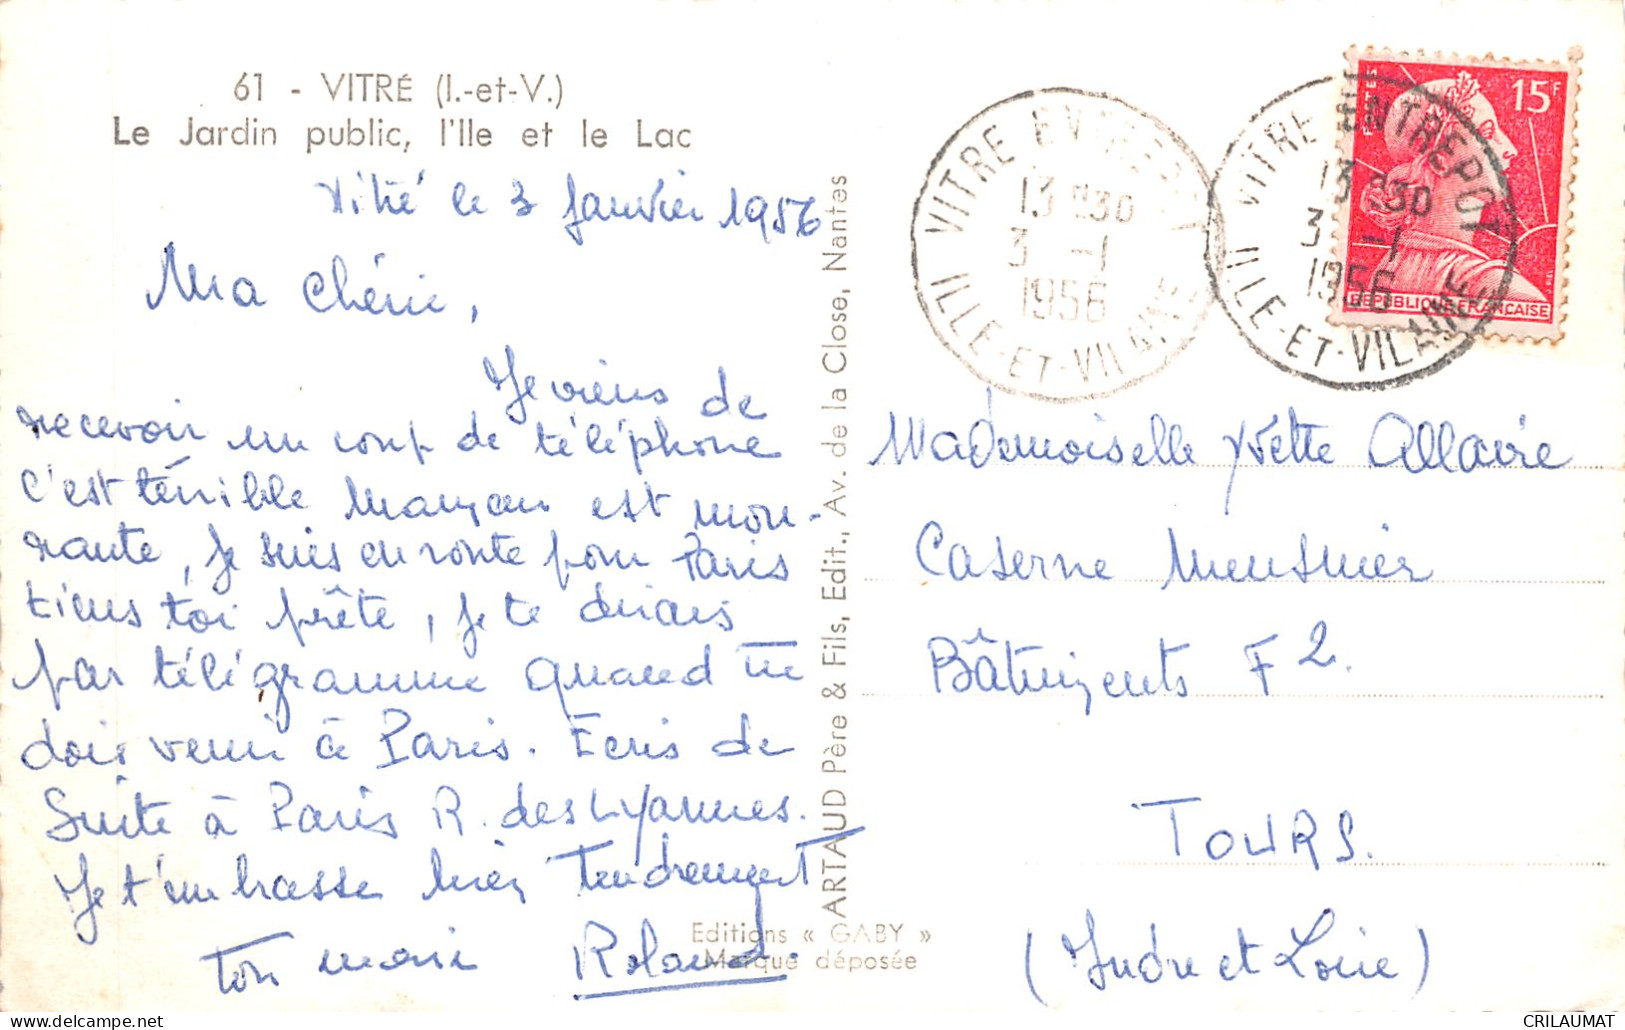 61 - VITRÉ (I.-et-V.)
Le Jardin public, l'Ile et le Lac
Vitré le 3 Janvier 1956
Ma Chérie,
Je viens de
recevoir un coup de téléphone
c'est térrible Mançan est mou-
rante, je suis en route pour Paris
tiens toi prête, je te dirais
par télégramme quand tu
dois venir à Paris. Ecris de
Suite à Paris R. des Lyannes.
Je t'embrasse bien Tendrement
ton mari Roland.
ARTAUD Père & Fils, Edit., Av. de la Close, Nantes
Editions « GABY »
Marque déposée
VITRE ENTREPOT
13 H30
3 -1
1956
ILLE-ET-VILAINE
VITRE ENTREPOT
13 H30
3 -1
1956
ILLE-ET-VILAINE
POSTES
15F
REPUBLIQUE FRANÇAISE
Mademoiselle Yvette Allaire
Caserne Meusnier
Bâtiments F2.
TOURS.
(Indre et Loire)
CRILAUMAT